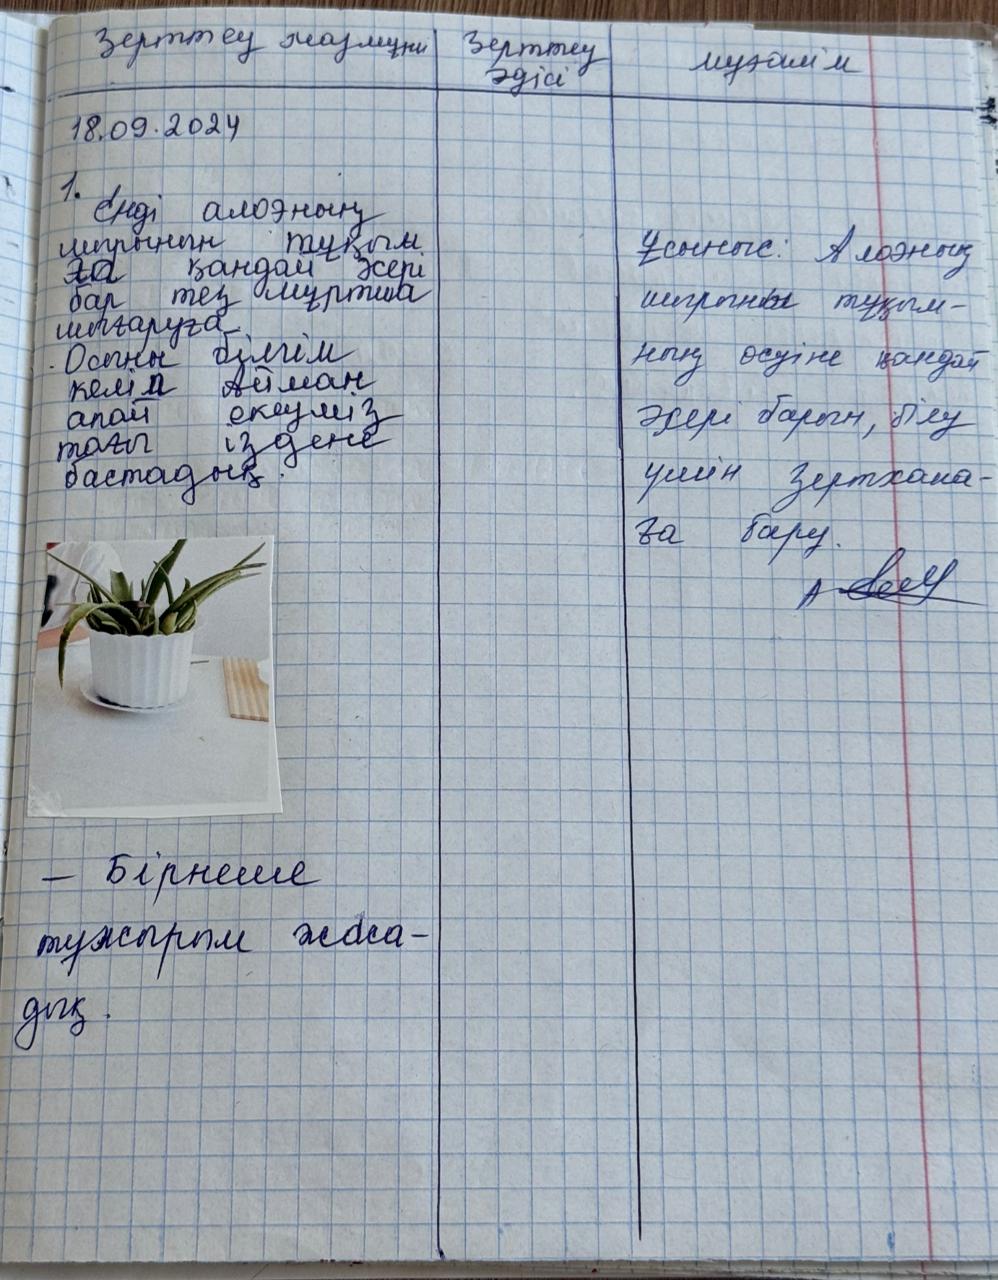 Зерттеу мазмұны
Зерттеу
әдісі
мұғалім
18.09.2024
1.
Енді алоэның
шырынын тұқым
ға қандай әсері
бар тез мұртша
шығаруға
Осыны білгім
келіп Айман
апай екеуміз
тағы ізdene
бастадық.
– Бірнеше
тұжырым жаса-
дық.
Ұсыныс: Алоэның
шырыны тұқым-
ның өсуіне қандай
әсері барын, білу
үшін Зертхана-
ға бару.